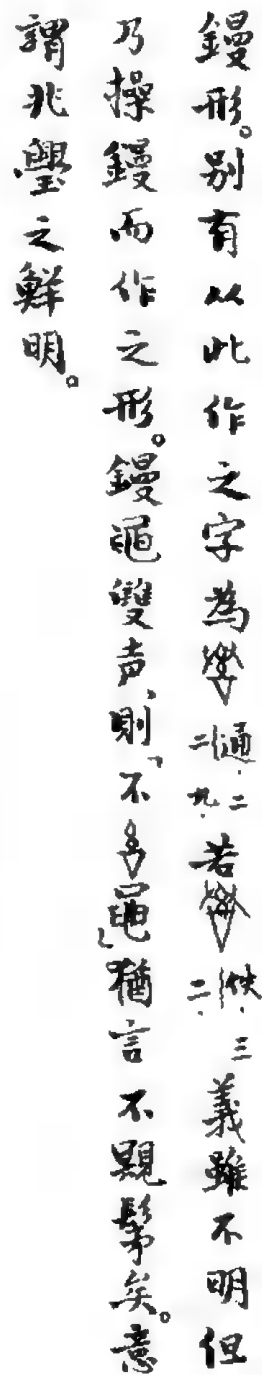 鏝形。别有从此作之字為(通·二·二九·)若(佚·三二·)義雖不明但
乃操鏝而作之形。鏝黽雙声、則「不黽」猶言不覭髳矣。意
謂兆璺之鮮明。